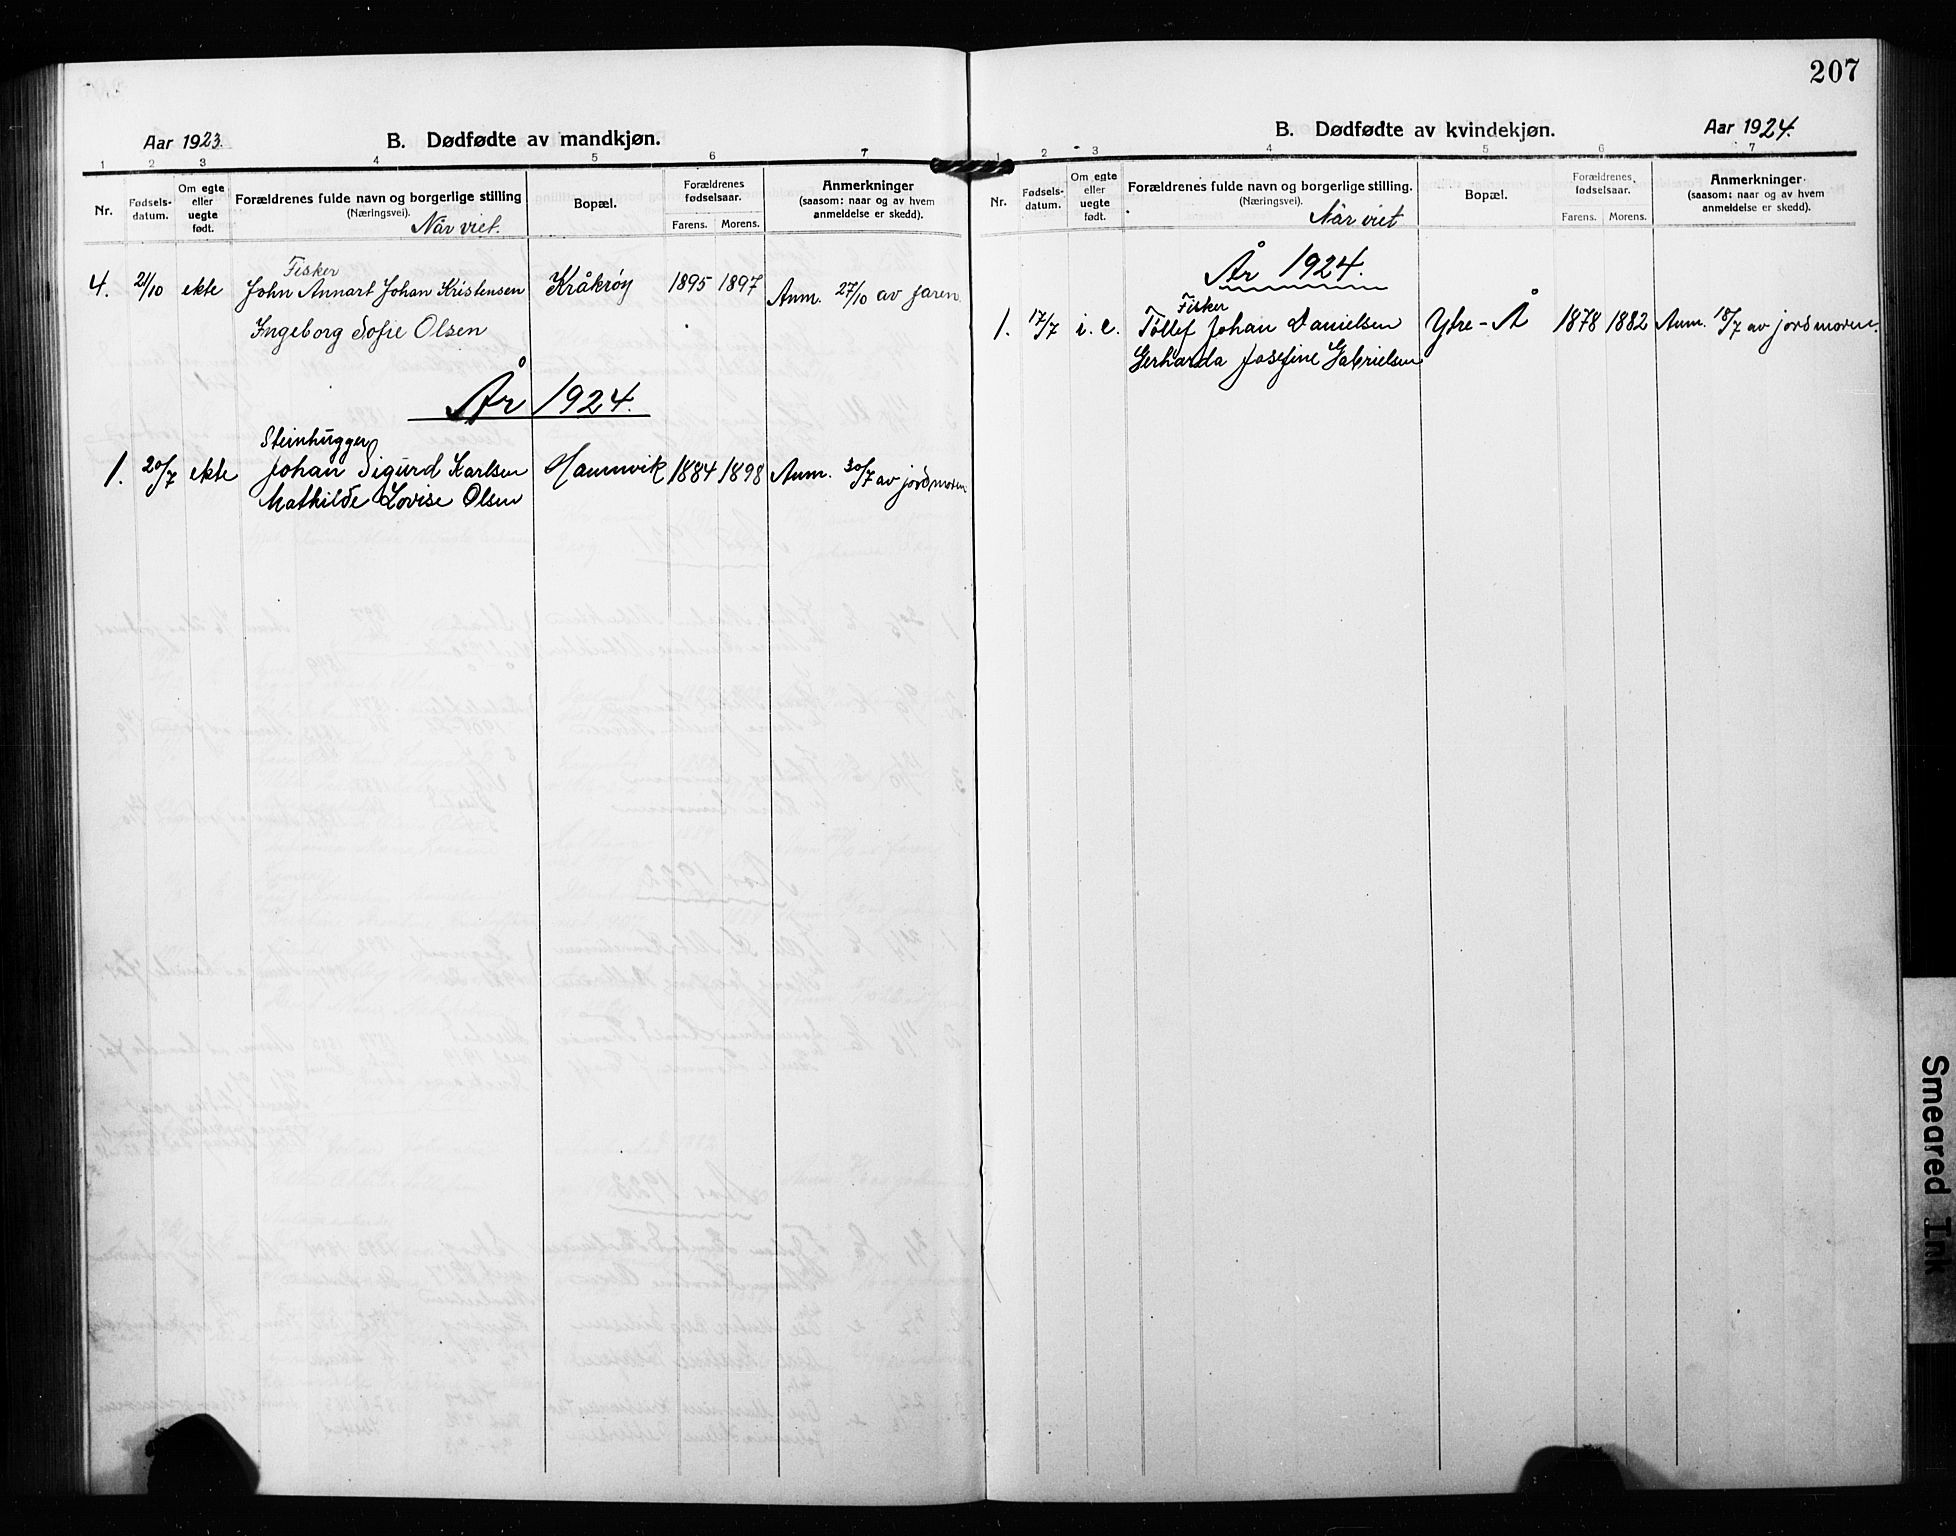 Aar 1923.
B. Dødfødte av mandkjøn.
1 2 3 4 5 6 7
Nr.
Fødsels-
datum.
Om egte
eller
uegte
født.
Forældrenes fulde navn og borgerlige stilling
(Næringsvei).
Når viet.
Bopæl.
Forældrenes
fødselsaar.
Farens. Morens.
Anmerkninger
(saasom: naar og av hvem
anmeldelse er skedd).
Fisker
4. 21/10 ekte John Annart Johan Kristensen Kråkrøy 1895 1897 Anm. 27/10 av faren.
Ingeborg Sofie Olsen
År 1924.
Steinhugger
1. 20/7 ekte Johan Sigurd Karlsen Hamnvik 1884 1898 Anm. 30/7 av jordmoren
Mathilde Lovise Olsen
207
B. Dødfødte av kvindekjøn.
Aar 1924.
1 2 3 4 5 6 7
Nr.
Fødsels-
datum.
Om egte
eller
uegte
født.
Forældrenes fulde navn og borgerlige stilling.
(Næringsvei).
Når viet
Bopæl.
Forældrenes
fødselsaar.
Farens. Morens.
Anmerkninger
(saasom: naar og av hvem
anmeldelse er skedd).
År 1924.
Fisker
1. 17/7 i. e. Tøllef Johan Danielsen Ytre-Å 1878 1882 Anm. 18/7 av jordmoren.
Gerharda Josefine Gabrielsen
Smeared Ink